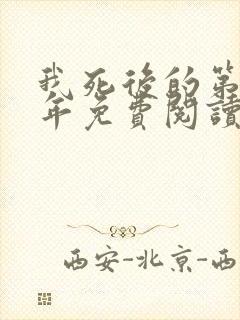 我死後的第
年免費閱讀
西安-北京-西